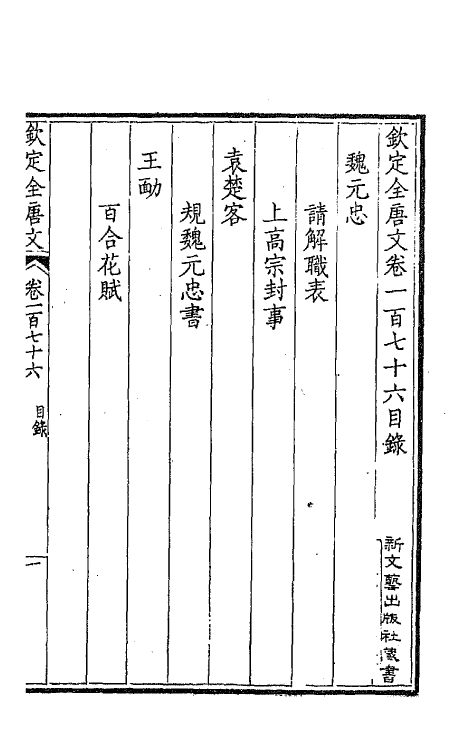 欽定全唐文卷一百七十六目錄
魏元忠
請解職表
上高宗封事
袁楚客
規魏元忠書
王勔
百合花賦
欽定全唐文
卷一百七十六
目錄
一
新文藝出版社藏書